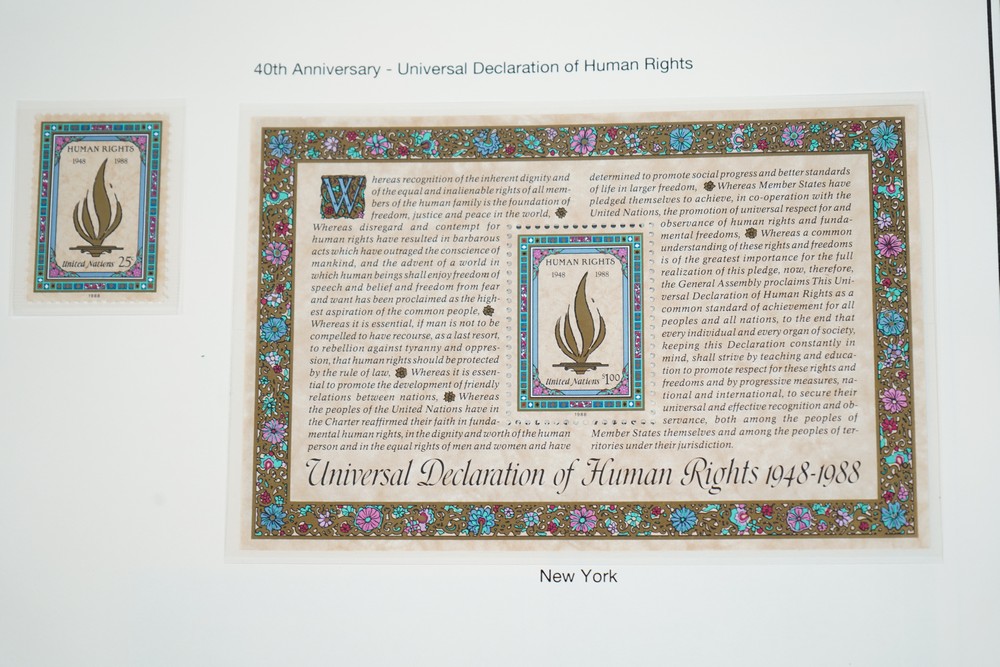 40th Anniversary - Universal Declaration of Human Rights
HUMAN RIGHTS
1948 1988
United Nations 25¢
1988
Whereas recognition of the inherent dignity and
of the equal and inalienable rights of all mem-
bers of the human family is the foundation of
freedom, justice and peace in the world,
Whereas disregard and contempt for
human rights have resulted in barbarous
acts which have outraged the conscience of
mankind, and the advent of a world in
which human beings shall enjoy freedom of
speech and belief and freedom from fear
and want has been proclaimed as the high-
est aspiration of the common people,
Whereas it is essential, if man is not to be
compelled to have recourse, as a last resort,
to rebellion against tyranny and oppres-
sion, that human rights should be protected
by the rule of law, Whereas it is essen-
tial to promote the development of friendly
relations between nations, Whereas
the peoples of the United Nations have in
the Charter reaffirmed their faith in funda-
mental human rights, in the dignity and worth of the human
person and in the equal rights of men and women and have
determined to promote social progress and better standards
of life in larger freedom, Whereas Member States have
pledged themselves to achieve, in co-operation with the
United Nations, the promotion of universal respect for and
observance of human rights and funda-
mental freedoms, Whereas a common
understanding of these rights and freedoms
is of the greatest importance for the full
realization of this pledge, now, therefore,
the General Assembly proclaims This Uni-
versal Declaration of Human Rights as a
common standard of achievement for all
peoples and all nations, to the end that
every individual and every organ of society,
keeping this Declaration constantly in
mind, shall strive by teaching and educa-
tion to promote respect for these rights and
freedoms and by progressive measures, na-
tional and international, to secure their
universal and effective recognition and ob-
servance, both among the peoples of
Member States themselves and among the peoples of ter-
ritories under their jurisdiction.
HUMAN RIGHTS
1948 1988
United Nations $1.00
1988
Universal Declaration of Human Rights 1948-1988
New York